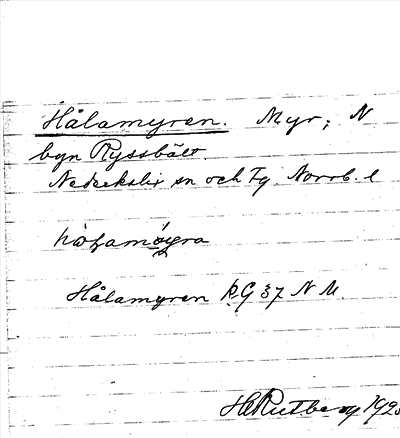 Hålamyren. Myr; N
byn Ryssbält.
Nederkalix sn och Tg. Norrb. l
Hålamyren RG 37 N M.
H Rutberg 192